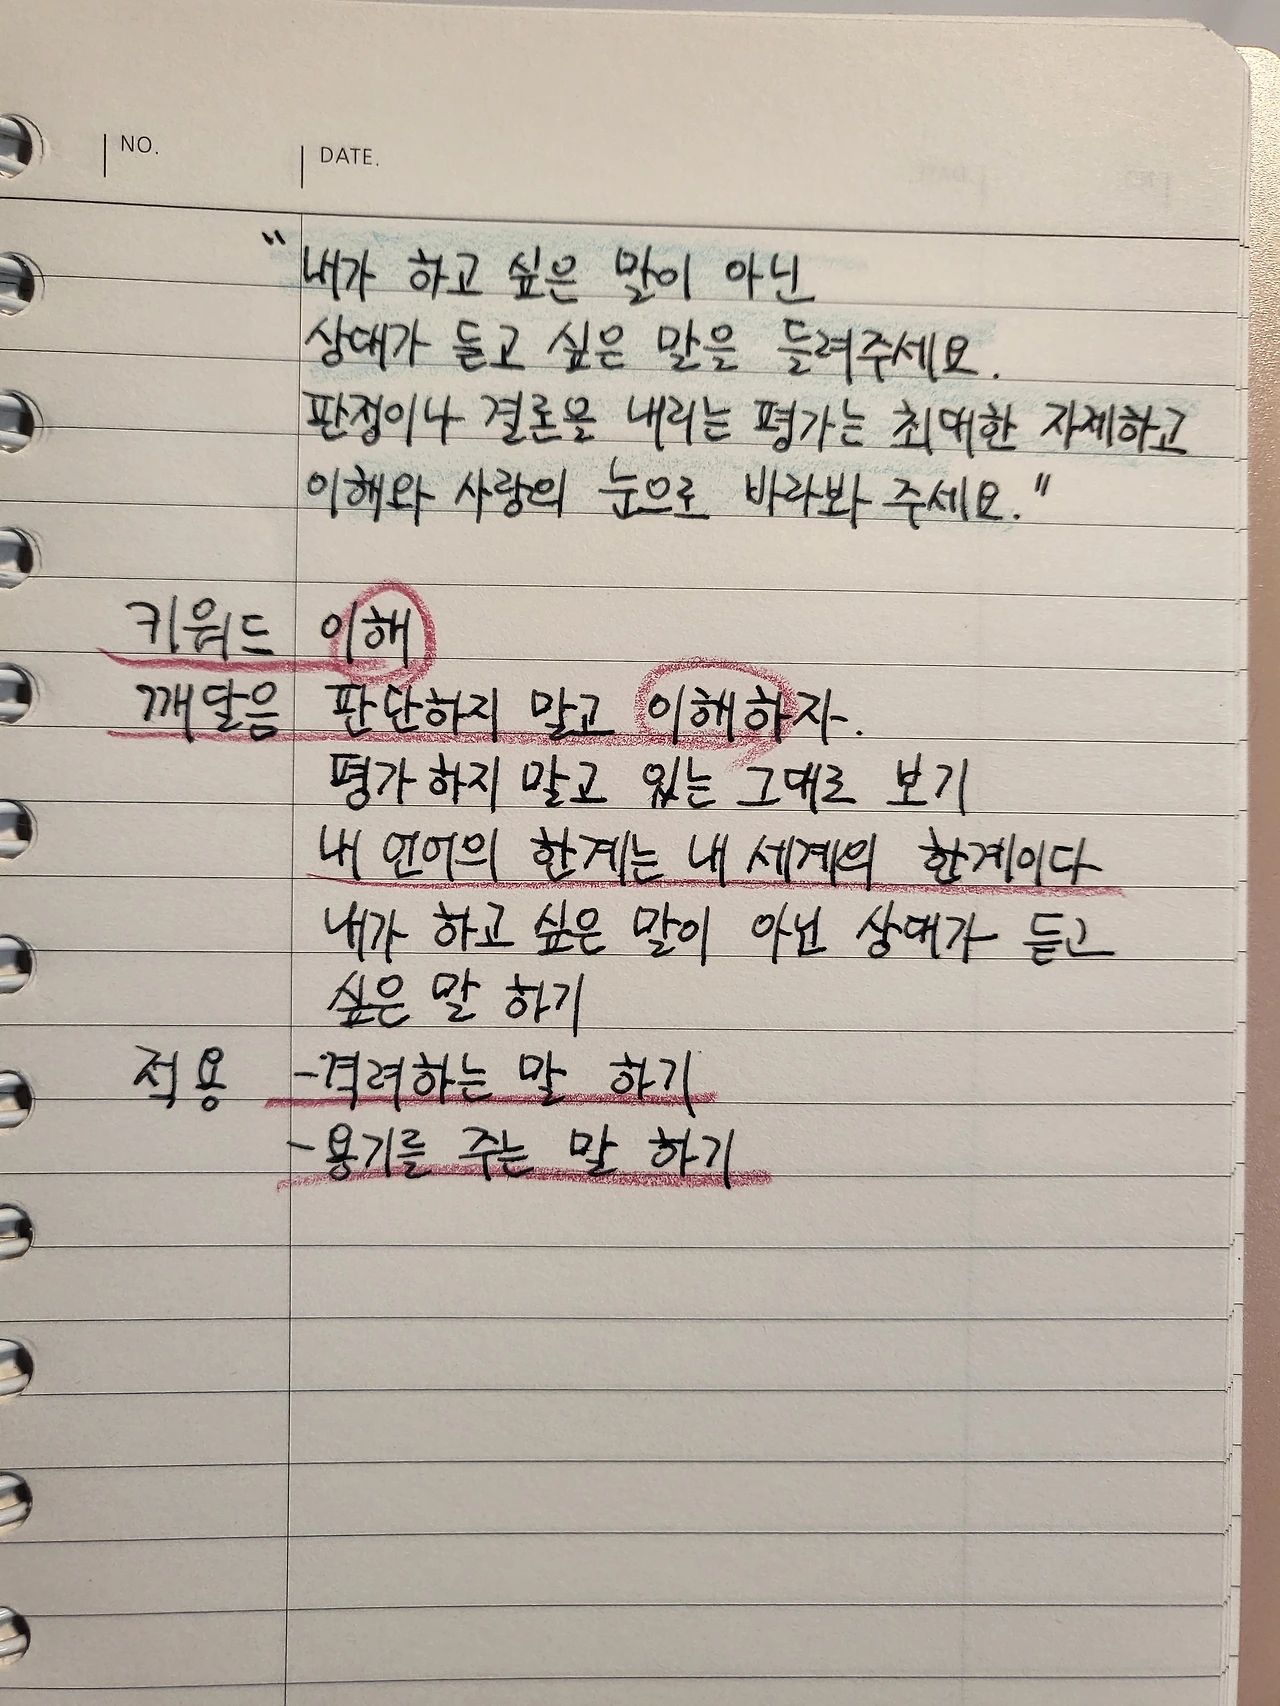 NO.
DATE.
"내가 하고 싶은 말이 아닌
상대가 듣고 싶은 말을 들려주세요.
판정이나 결론을 내리는 평가는 최대한 자제하고
이해와 사랑의 눈으로 바라봐 주세요."
키워드 이해
깨달음 판단하지 말고 이해하자.
평가하지 말고 있는 그대로 보기
내 언어의 한계는 내 세계의 한계이다
내가 하고 싶은 말이 아닌 상대가 듣고
싶은 말 하기
적용 -격려하는 말 하기
-용기를 주는 말 하기